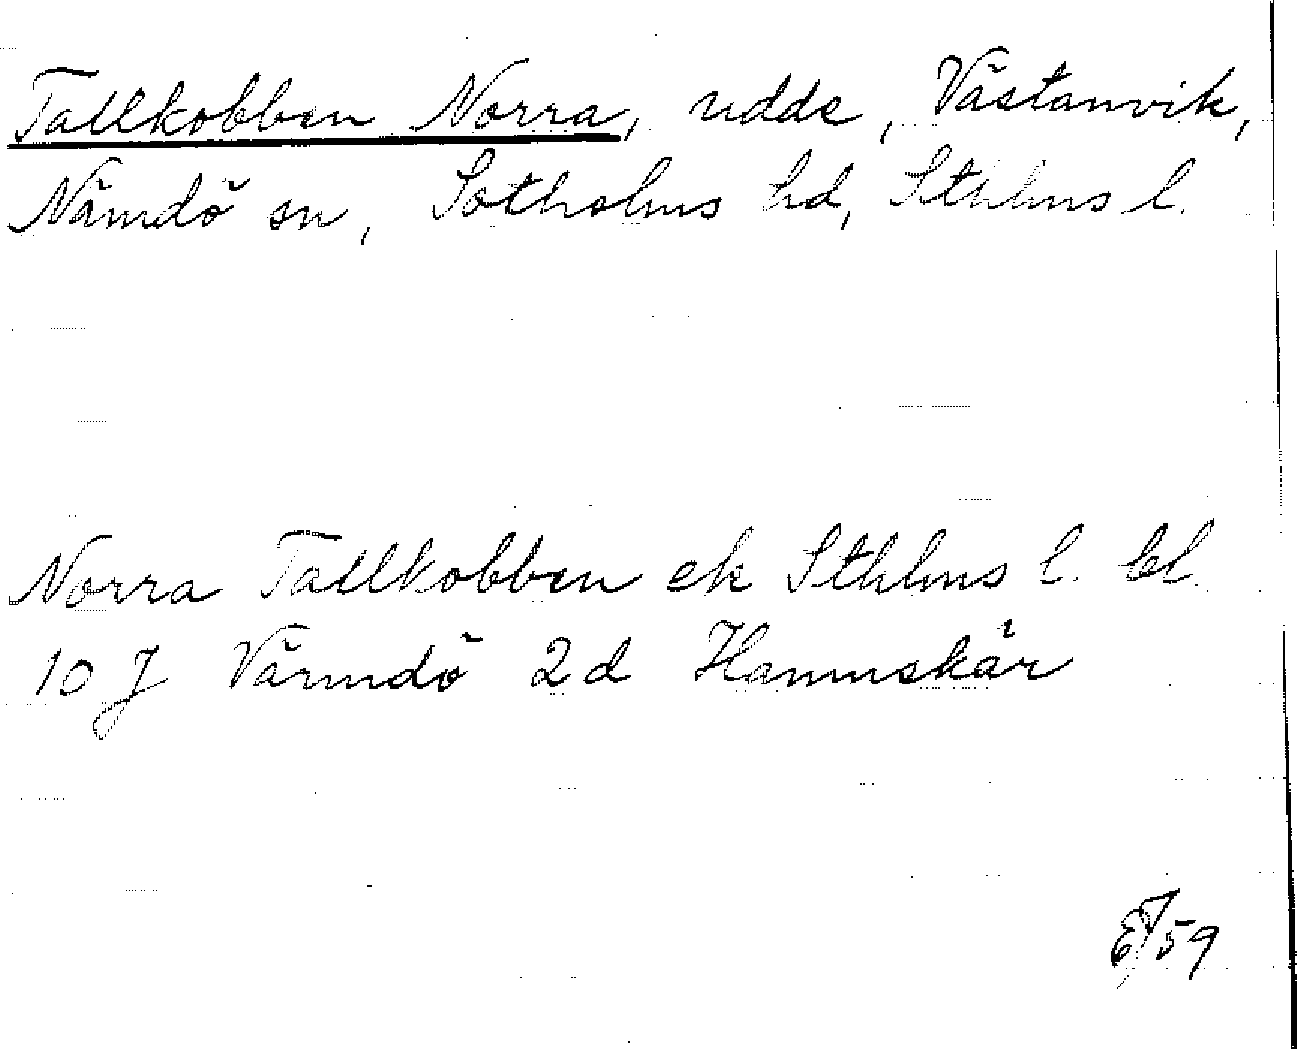 Tallkobben Norra, udde, Västanvik,
Nämdö sn, Sotholms hd, Sthlms l.
Norra Tallkobben ek Sthlms l. bl.
10 J Värmdö 2d Hamnskär
59